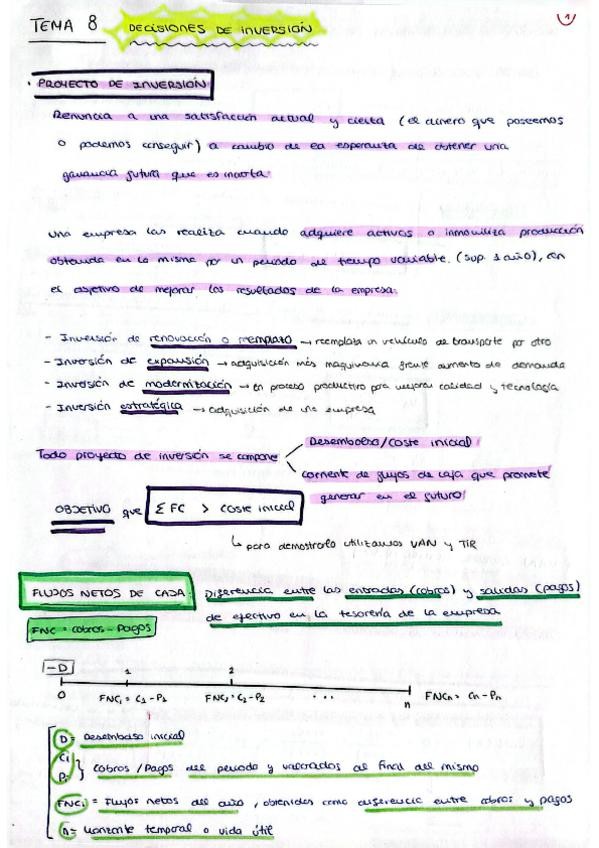 TEMA 8 DECISIONES DE INVERSIÓN
1
· PROYECTO DE INVERSIÓN
Renuncia a una satisfacción actual y cierta (el dinero que poseemos
o podemos conseguir) a cambio de la esperanza de obtener una
ganancia futura que es incierta.
Una empresa las realiza cuando adquiere activos o inmoviliza producción
obtenida en la misma por un periodo de tiempo variable. (sup. 1 año), con
el objetivo de mejorar los resultados de la empresa.
- Inversión de renovación o reemplazo → reemplaza un vehículo de transporte por otro
- Inversión de expansión → adquisición más maquinaria frente aumento de demanda
- Inversión de modernización → en proceso productivo para mejorar calidad y tecnología
- Inversión estratégica → adquisición de una empresa
Desembolso/coste inicial
Todo proyecto de inversión se compone
corriente de flujos de caja que promete
generar en el futuro
OBJETIVO que Σ FC > coste inicial
↳ para demostrarlo utilizamos VAN y TIR
FLUJOS NETOS DE CAJA: Diferencia entre las entradas (cobros) y salidas (pagos)
de efectivo en la tesorería de la empresa
FNC = cobros - Pagos
-D 1 2
0 FNC₁ = C₁ - P₁ FNC₂ = C₂ - P₂ ... n FNCn = Cn - Pn
D = Desembolso inicial
Ci
Pi } Cobros / Pagos del periodo y valorados al final del mismo
FNCi = Flujos netos del año, obtenidos como diferencia entre cobros y pagos
n = Horizonte temporal o vida útil